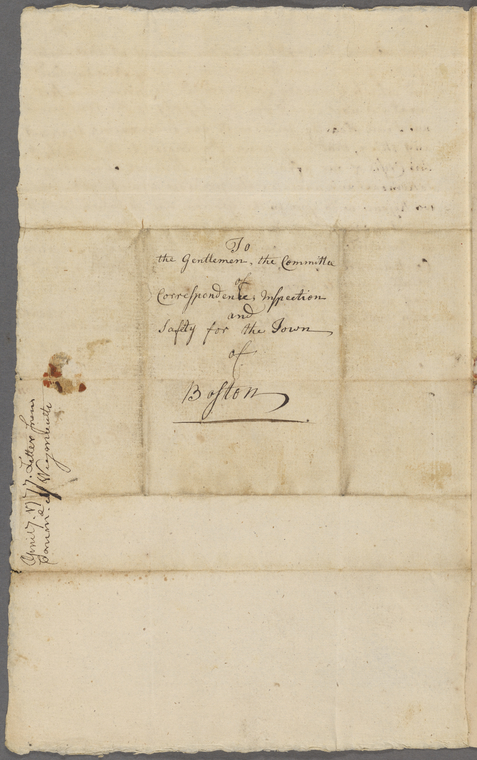 To
the Gentlemen, the Committee
of
Correspondence, Inspection
and
Safty for the Town
of
Boston
April 7. 1777. Letter from
Comm.ee of Weymouth